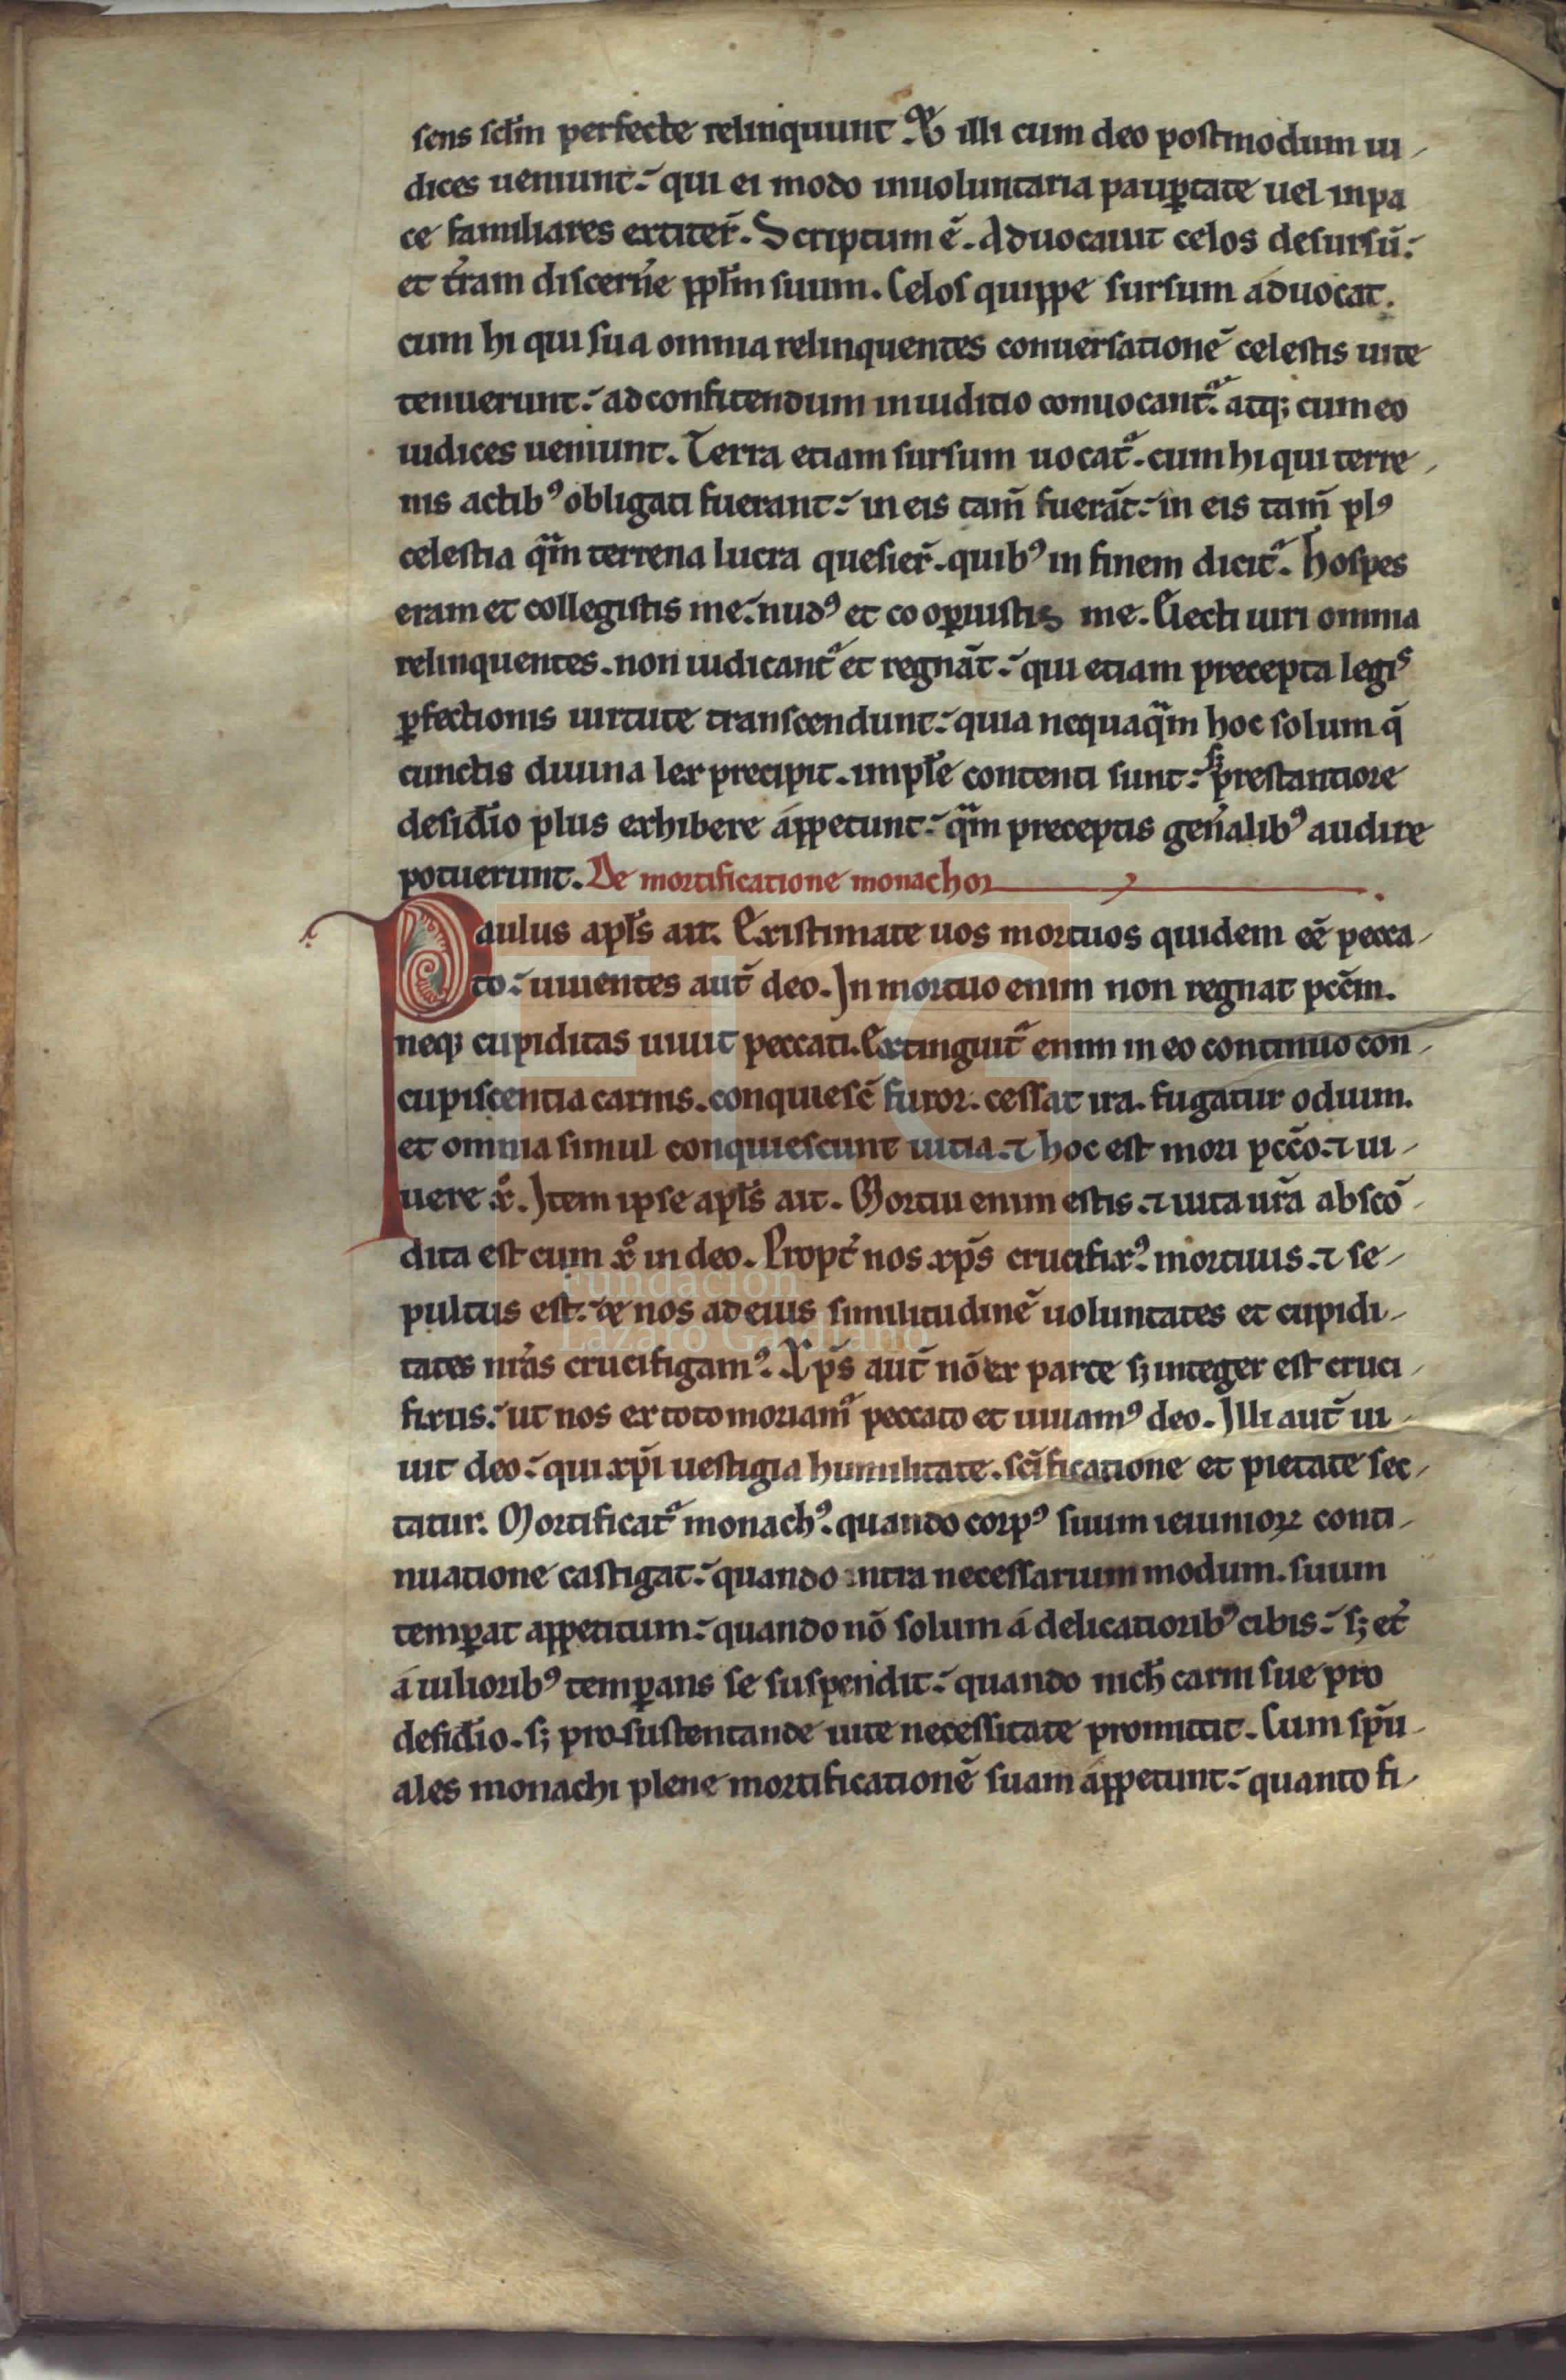 sens sclm̄ perfecte relinquunt. Et illi cum deo postmodum iu-
dices ueniunt. qui ei modo inuoluntaria paup̱tate uel inpa
ce familiares extiter̄. Scriptum ē. Aduocauit celos desursū.
et tr̄am discern̄e pplm̄ suum. Celos quippe sursum aduocat.
cum hi qui sua omnia relinquentes conuersationē celestis uite
tenuerunt. ad confitendum in iuditio conuocantᷣ. atq; cum eo
iudices ueniunt. Terra etiam sursum uocatᷣ. cum hi qui terre-
nis actibꝰ obligati fuerant. in eis tam̄ fuerāt. in eis tam̄ plꝰ
celestia qͣm terrena lucra quesier̄. quibꝰ in finem dicitᷣ. hospes
eram et collegistis me. nudꝰ et coop̱uistis me. Uecti uiri omnia
relinquentes. non iudicantᷣ et regnāt. qui etiam precepta legis
p̱fectionis uirtute transcendunt. quia nequaqͣm hoc solum q̄
cunctis diuina lex precipit. imple̅ contenti sunt. s; prestantiore
desid̄io plus exhibere appetunt. qͣm preceptis gen̄alibꝰ audire
potuerunt. De mortificatione monachoꝝ
Paulus apl̄s ait. Existimate uos mortuos quidem eē pecca-
to. uiuentes aut̄ deo. In mortuo enim non regnat pcc̄m.
neq; cupiditas uiuit peccati. Extinguitᷣ enim in eo continuo con-
cupiscentia carnis. conquiesc̄ furor. cessat ira. fugatur odium.
et omnia simul conquiescunt uitia. ⁊ hoc est mori pcc̄o. ⁊ ui-
uere xᷓo. Item ipse apl̄s ait. Mortui enim estis. ⁊ uita ur̄a abscō-
dita est cum xᷓo in deo. Propt̄ nos xp̄s crucifixꝰ. mortuus. ⁊ se-
pultus est. ut nos ad eius similitudinē uoluntates et cupidi-
tates nr̄as crucifigamꝰ. Xp̄s aut̄ nō ex parte s; integer est cruci-
fixus. ut nos ex toto moriamᷣ peccato et uiuamꝰ deo. Illi aut̄ ui-
uit deo. qui xp̄i uestigia humilitate. sc̄ificatione et pietate sec-
tatur. Mortificatᷣ monachꝰ. quando corpꝰ suum ieiunioꝝ conti-
nuatione castigat. quando intra necessarium modum. suum
temp̱at appetitum. quando nō solum a delicatioribꝰ cibis. s; et̄
a uilioribꝰ temp̱ans se suspendit. quando nich̄ carni sue pro
desid̄io. s; pro sustentande uite necessitate promittit. Cum sp̄u-
ales monachi plene mortificationē suam appetunt. quanto fi-